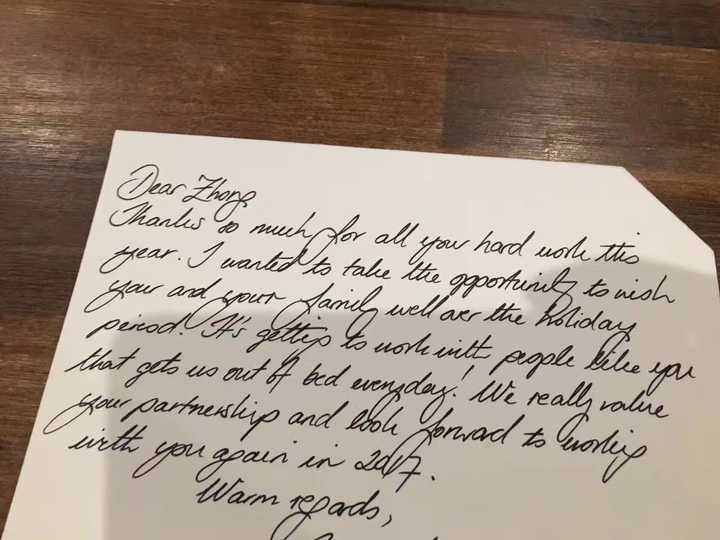 Dear Zhong
Thanks so much for all your hard work this
year. I wanted to take the opportunity to wish
your and your family well over the holiday
period. It's getting to work with people like you
that gets us out of bed everyday! We really value
your partnership and look forward to working
with you again in 2017.
Warm regards,